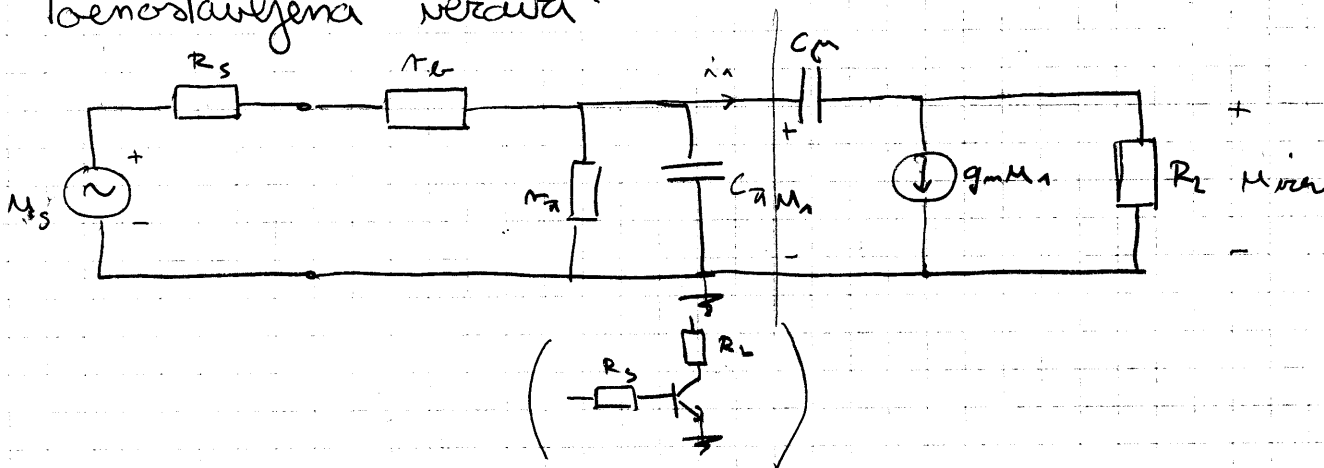 Poenostavljena verzija
Rs
rb
i1
Cμ
us
+
-
rπ
Cπ
+
u1
-
gmu1
RL
+
uizh
-
Rs
RL